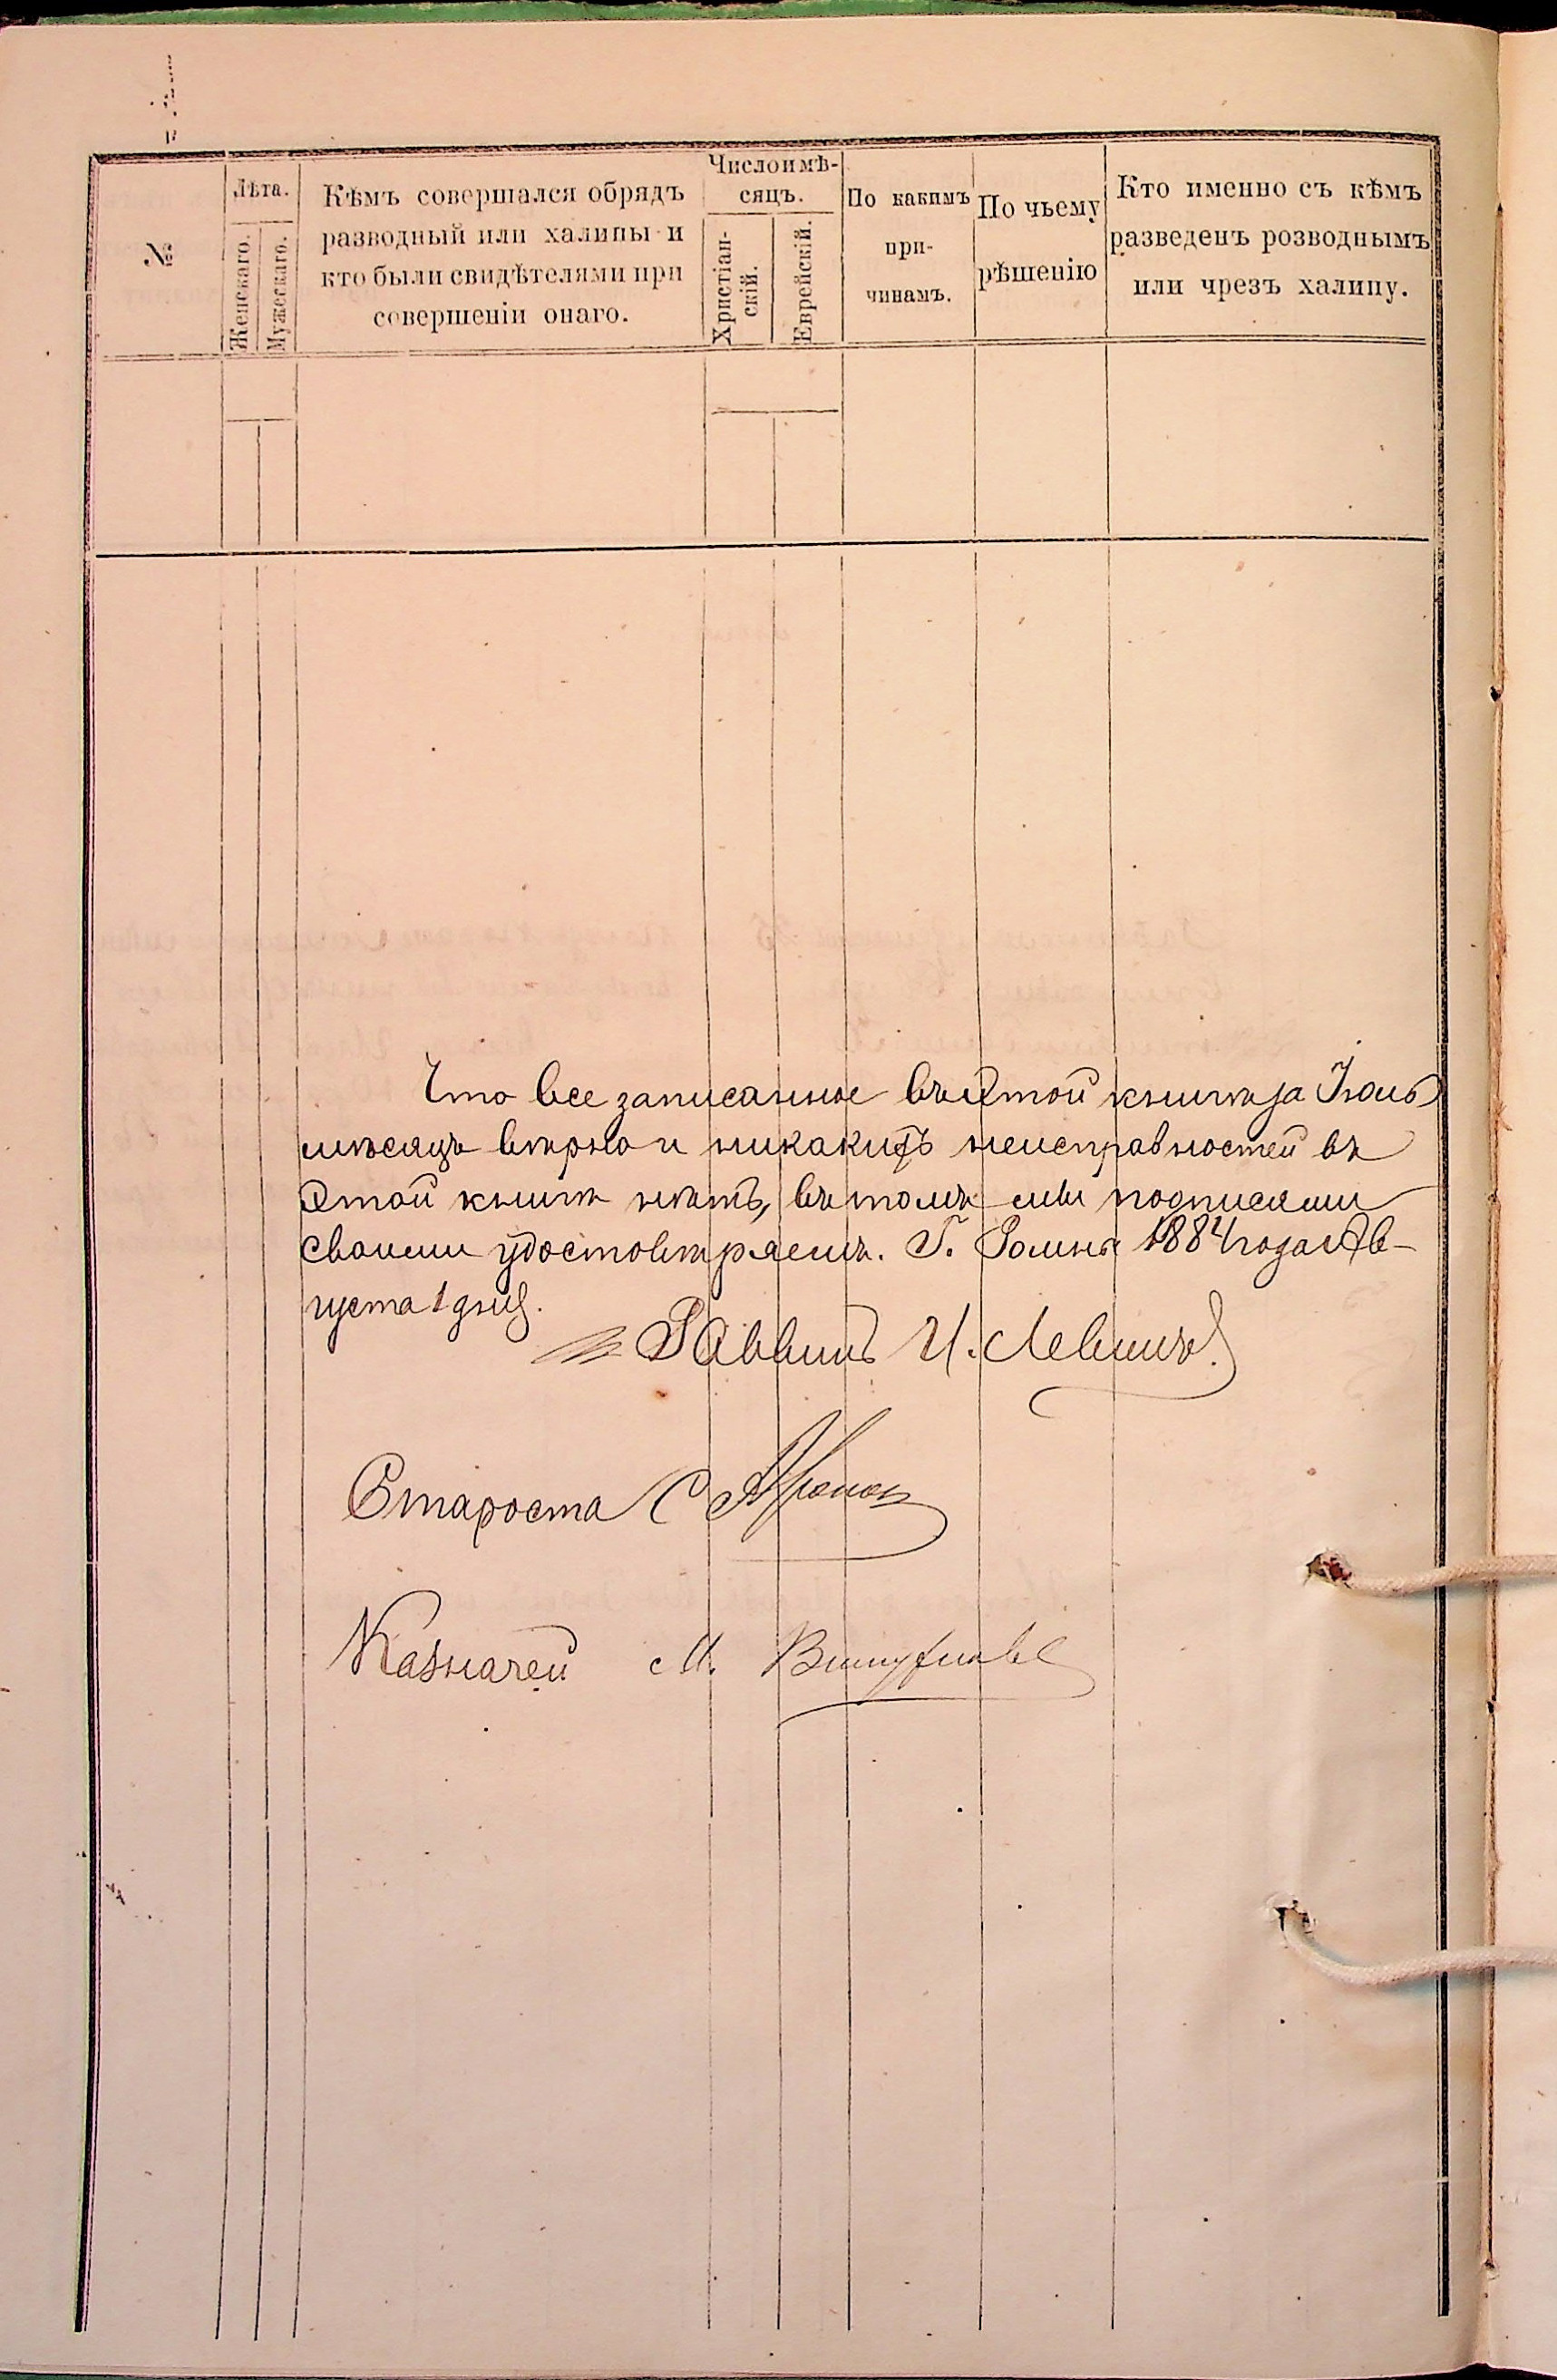 №
Лѣта.
Женскаго.
Мужескаго.
Кѣмъ совершался обрядъ
разводный или халицы и
кто были свидѣтелями при
совершеніи онаго.
Число и мѣ-
сяцъ.
Христіан-
скій.
Еврейскій.
По какимъ
при-
чинамъ.
По чьему
рѣшенію
Кто именно съ кѣмъ
разведенъ розводнымъ
или чрезъ халицу.
Что все записанное въ этой книгѣ за Іюль
мѣсяцъ вѣрно и никакихъ неисправностей въ
этой книгѣ нѣтъ, въ томъ мы подписями
своими удостовѣряемъ. Г. Ромны 1884 года Ав-
густа 1 дня.
Раввинъ И. Левинъ
Староста С
Казначей М.